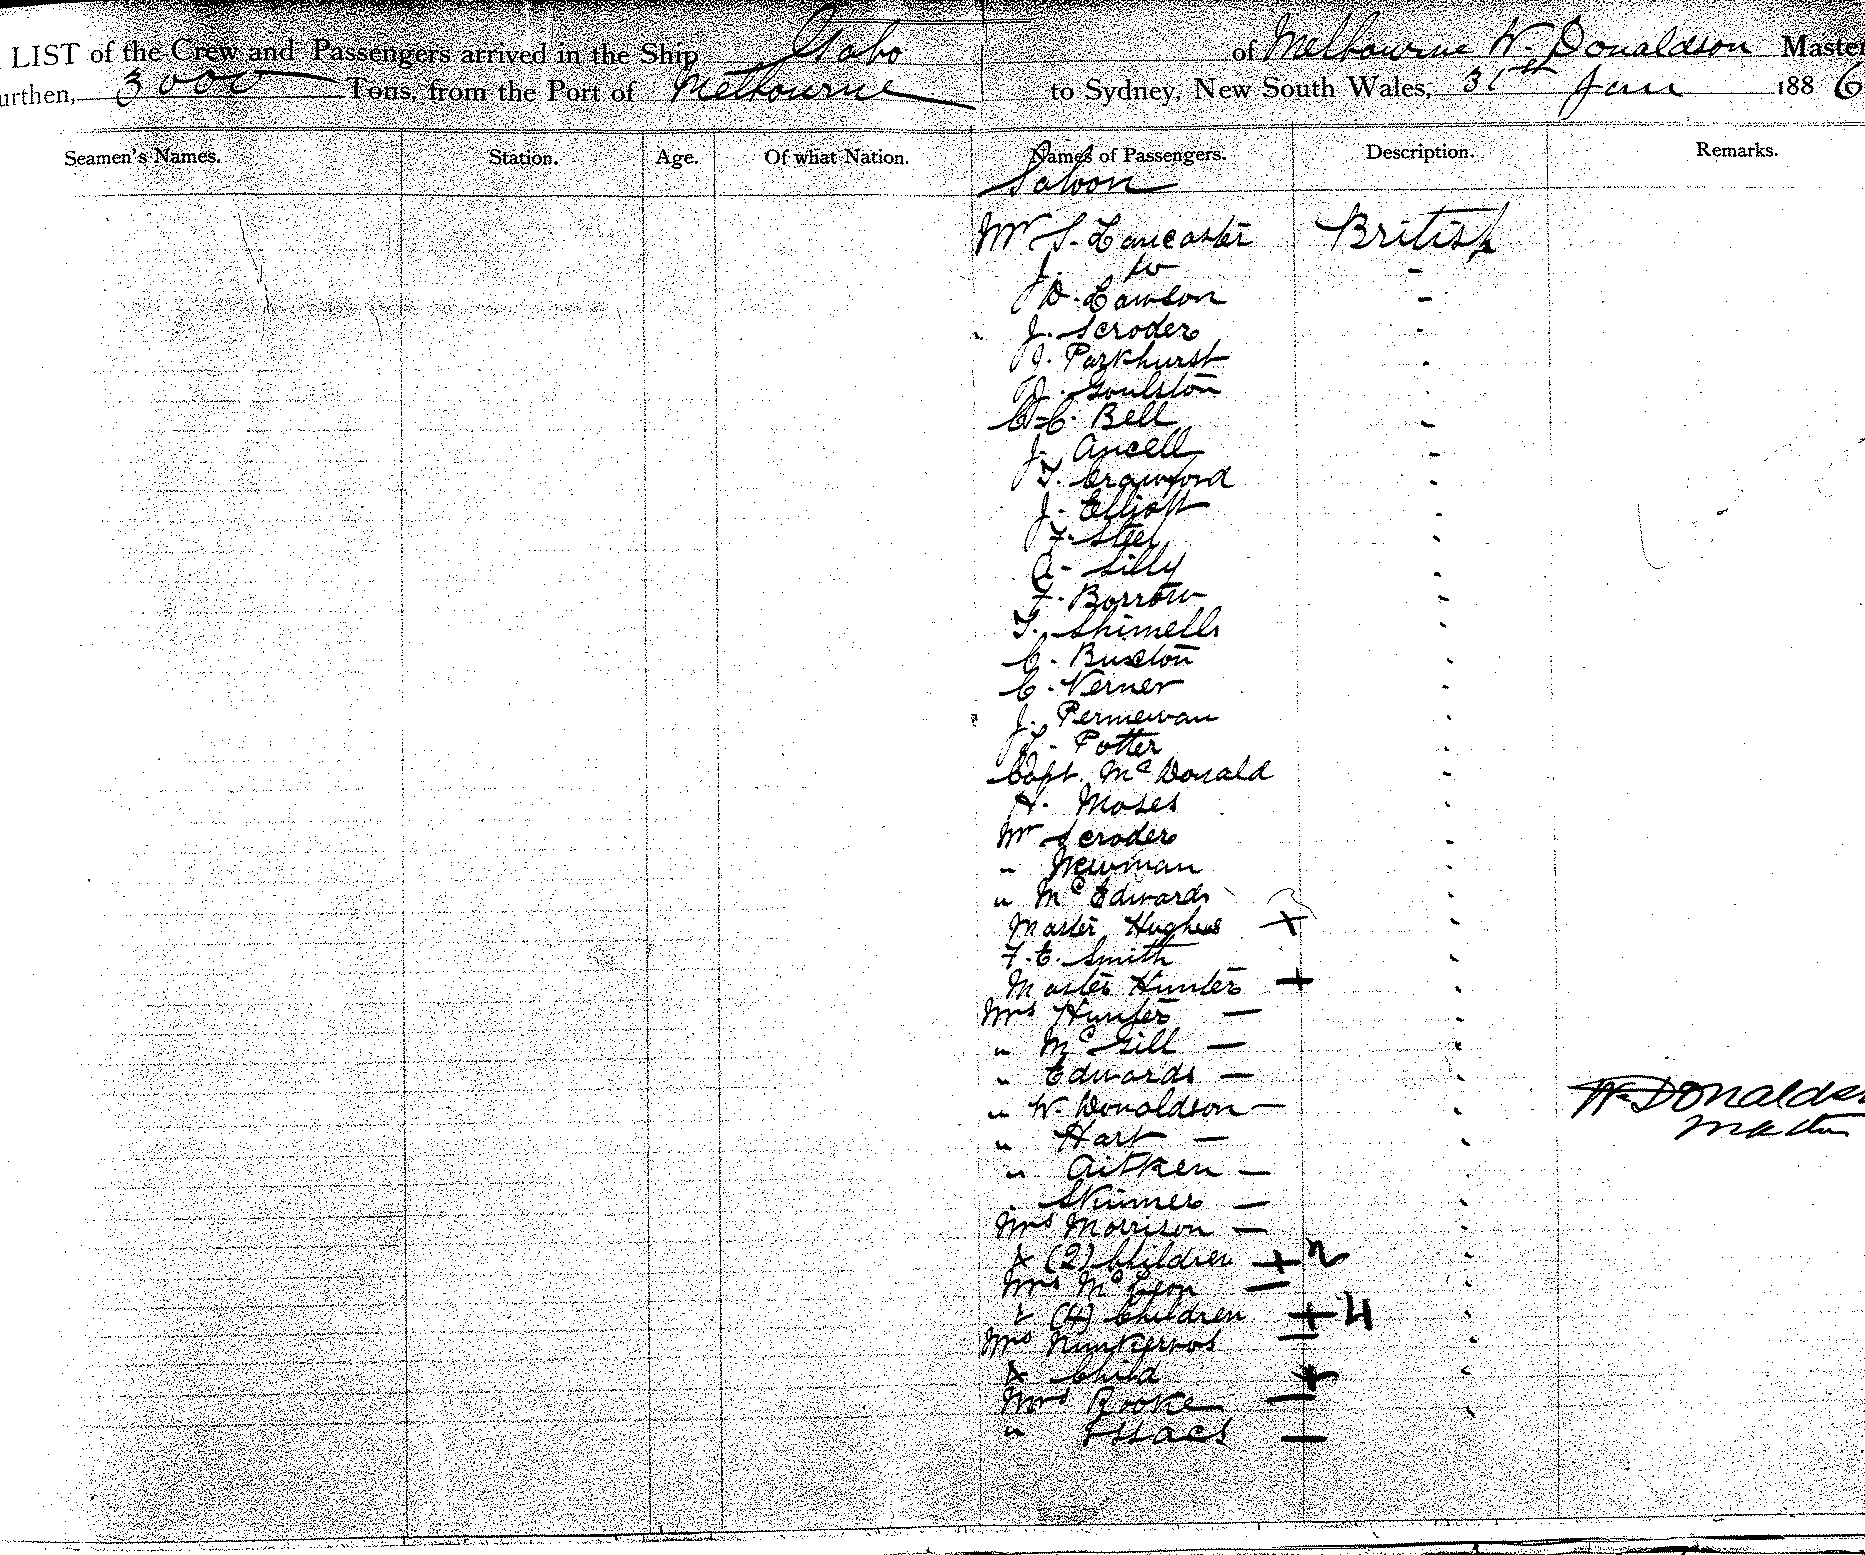 LIST of the Crew and Passengers arrived in the Ship Gabo of Melbourne W. Donaldson Master
urthen, 3000 Tons, from the Port of Melbourne to Sydney, New South Wales, 31st Jan 1886
Seamen's Names. Station. Age. Of what Nation. Names of Passengers. Description. Remarks.
Saloon
Mr S. Lancaster British
J. Do -
D. Lawson -
J. Scroder -
J. Parkhurst -
J. Goulston -
C. C. Bell -
J. Ancell -
T. Crawford -
J. Elliott -
F. Steel -
A. Lilly -
F. Borrow -
T. Shimells -
C. Buxton -
C. Verner -
J. Permewan -
L. Potter -
Capt. McDonald -
A. Moses -
Mr Scroder -
" Newman -
" Mc Edwards -
Master Hughes + -
F. E. Smith -
Master Hunter + -
Mrs Hunter - -
" McGill - -
" Edwards - -
" W. Donaldson - -
W. Donaldson
Master
" Hart - -
" Aitken -
" Skinner - -
Mrs Morrison - -
& (2) Children + 2 -
Mrs McLeon - -
& (4) Children + 4 -
Mrs - -
& Child + -
Mrs Rooke - -
" Issacs -